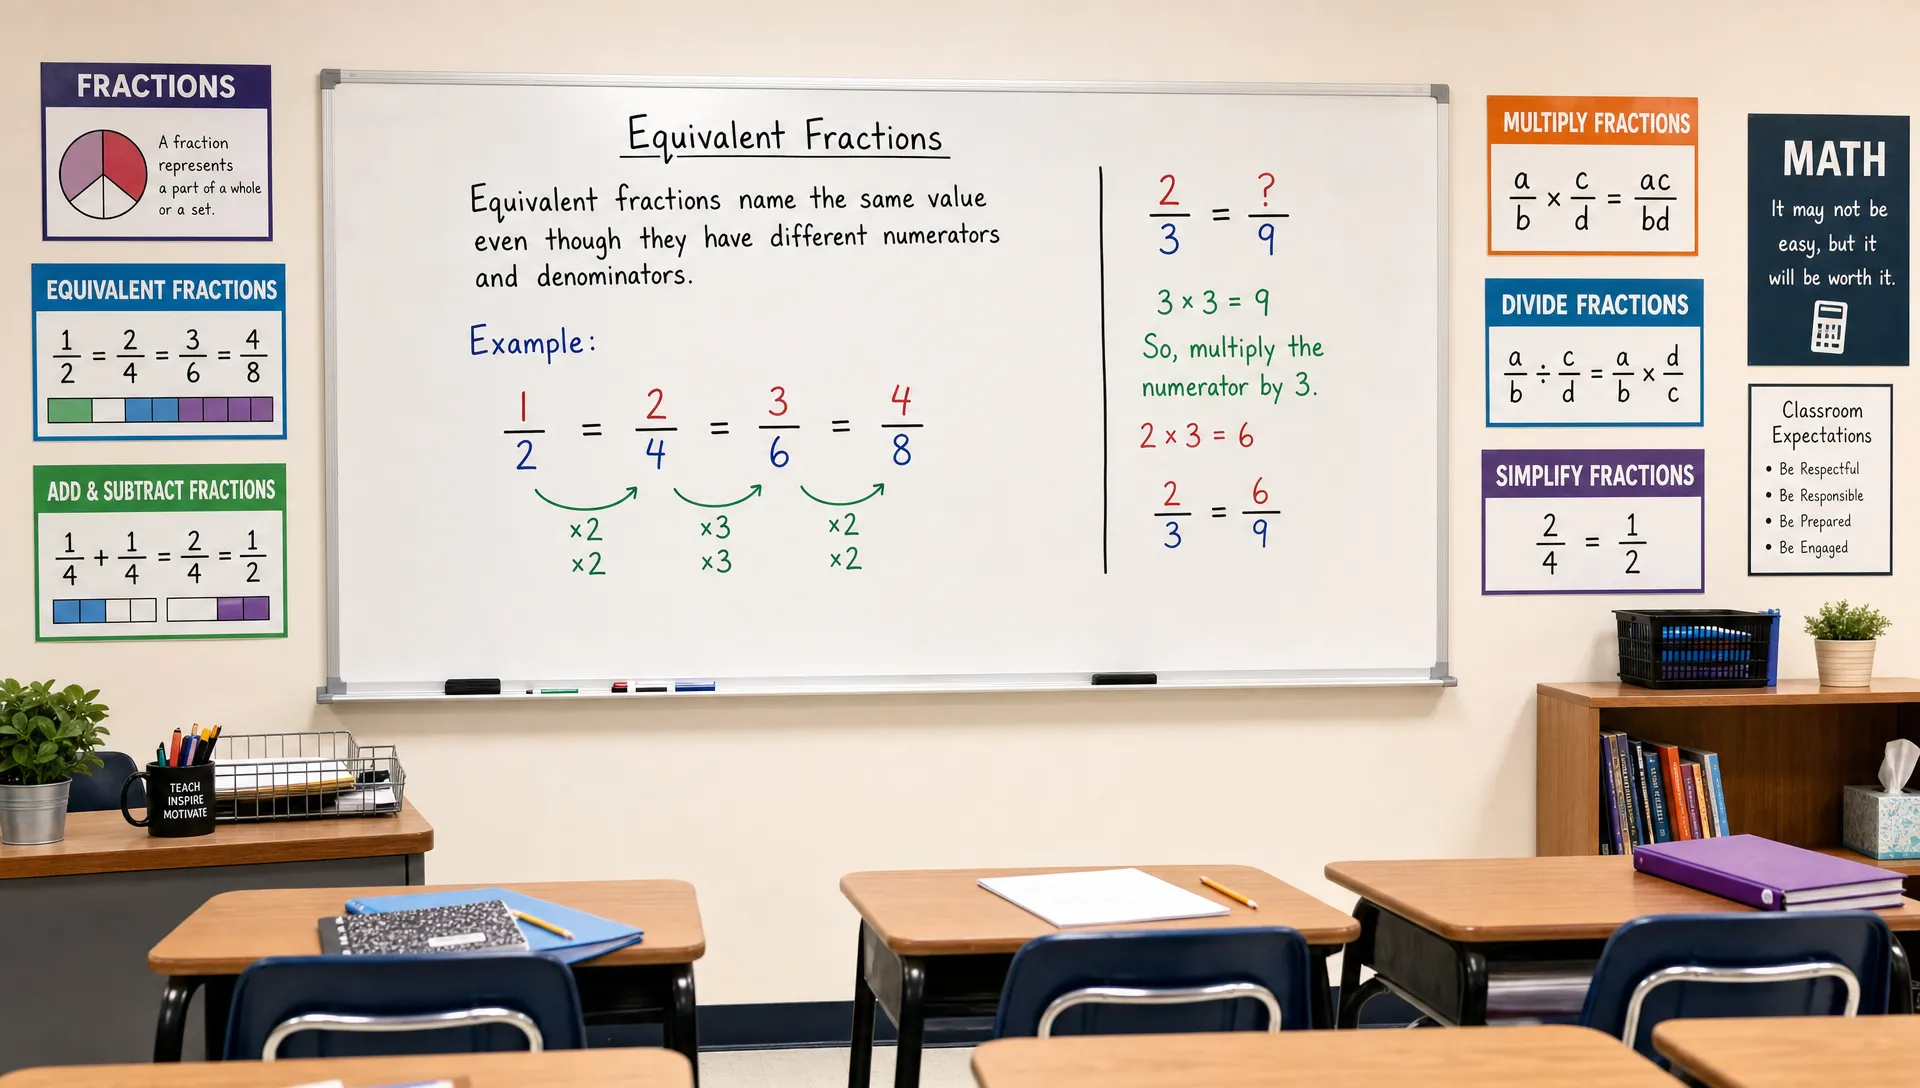 FRACTIONS
A fraction
represents
a part of a whole
or a set.
EQUIVALENT FRACTIONS
1/2 = 2/4 = 3/6 = 4/8
ADD & SUBTRACT FRACTIONS
1/4 + 1/4 = 2/4 = 1/2
Equivalent Fractions
Equivalent fractions name the same value
even though they have different numerators
and denominators.
Example:
1/2 = 2/4 = 3/6 = 4/8
×2 ×3 ×2
×2 ×3 ×2
2/3 = ?/9
3 × 3 = 9
So, multiply the
numerator by 3.
2 × 3 = 6
2/3 = 6/9
MULTIPLY FRACTIONS
a/b × c/d = ac/bd
DIVIDE FRACTIONS
a/b ÷ c/d = a/b × d/c
SIMPLIFY FRACTIONS
2/4 = 1/2
MATH
It may not be
easy, but it
will be worth it.
Classroom
Expectations
• Be Respectful
• Be Responsible
• Be Prepared
• Be Engaged
TEACH
INSPIRE
MOTIVATE